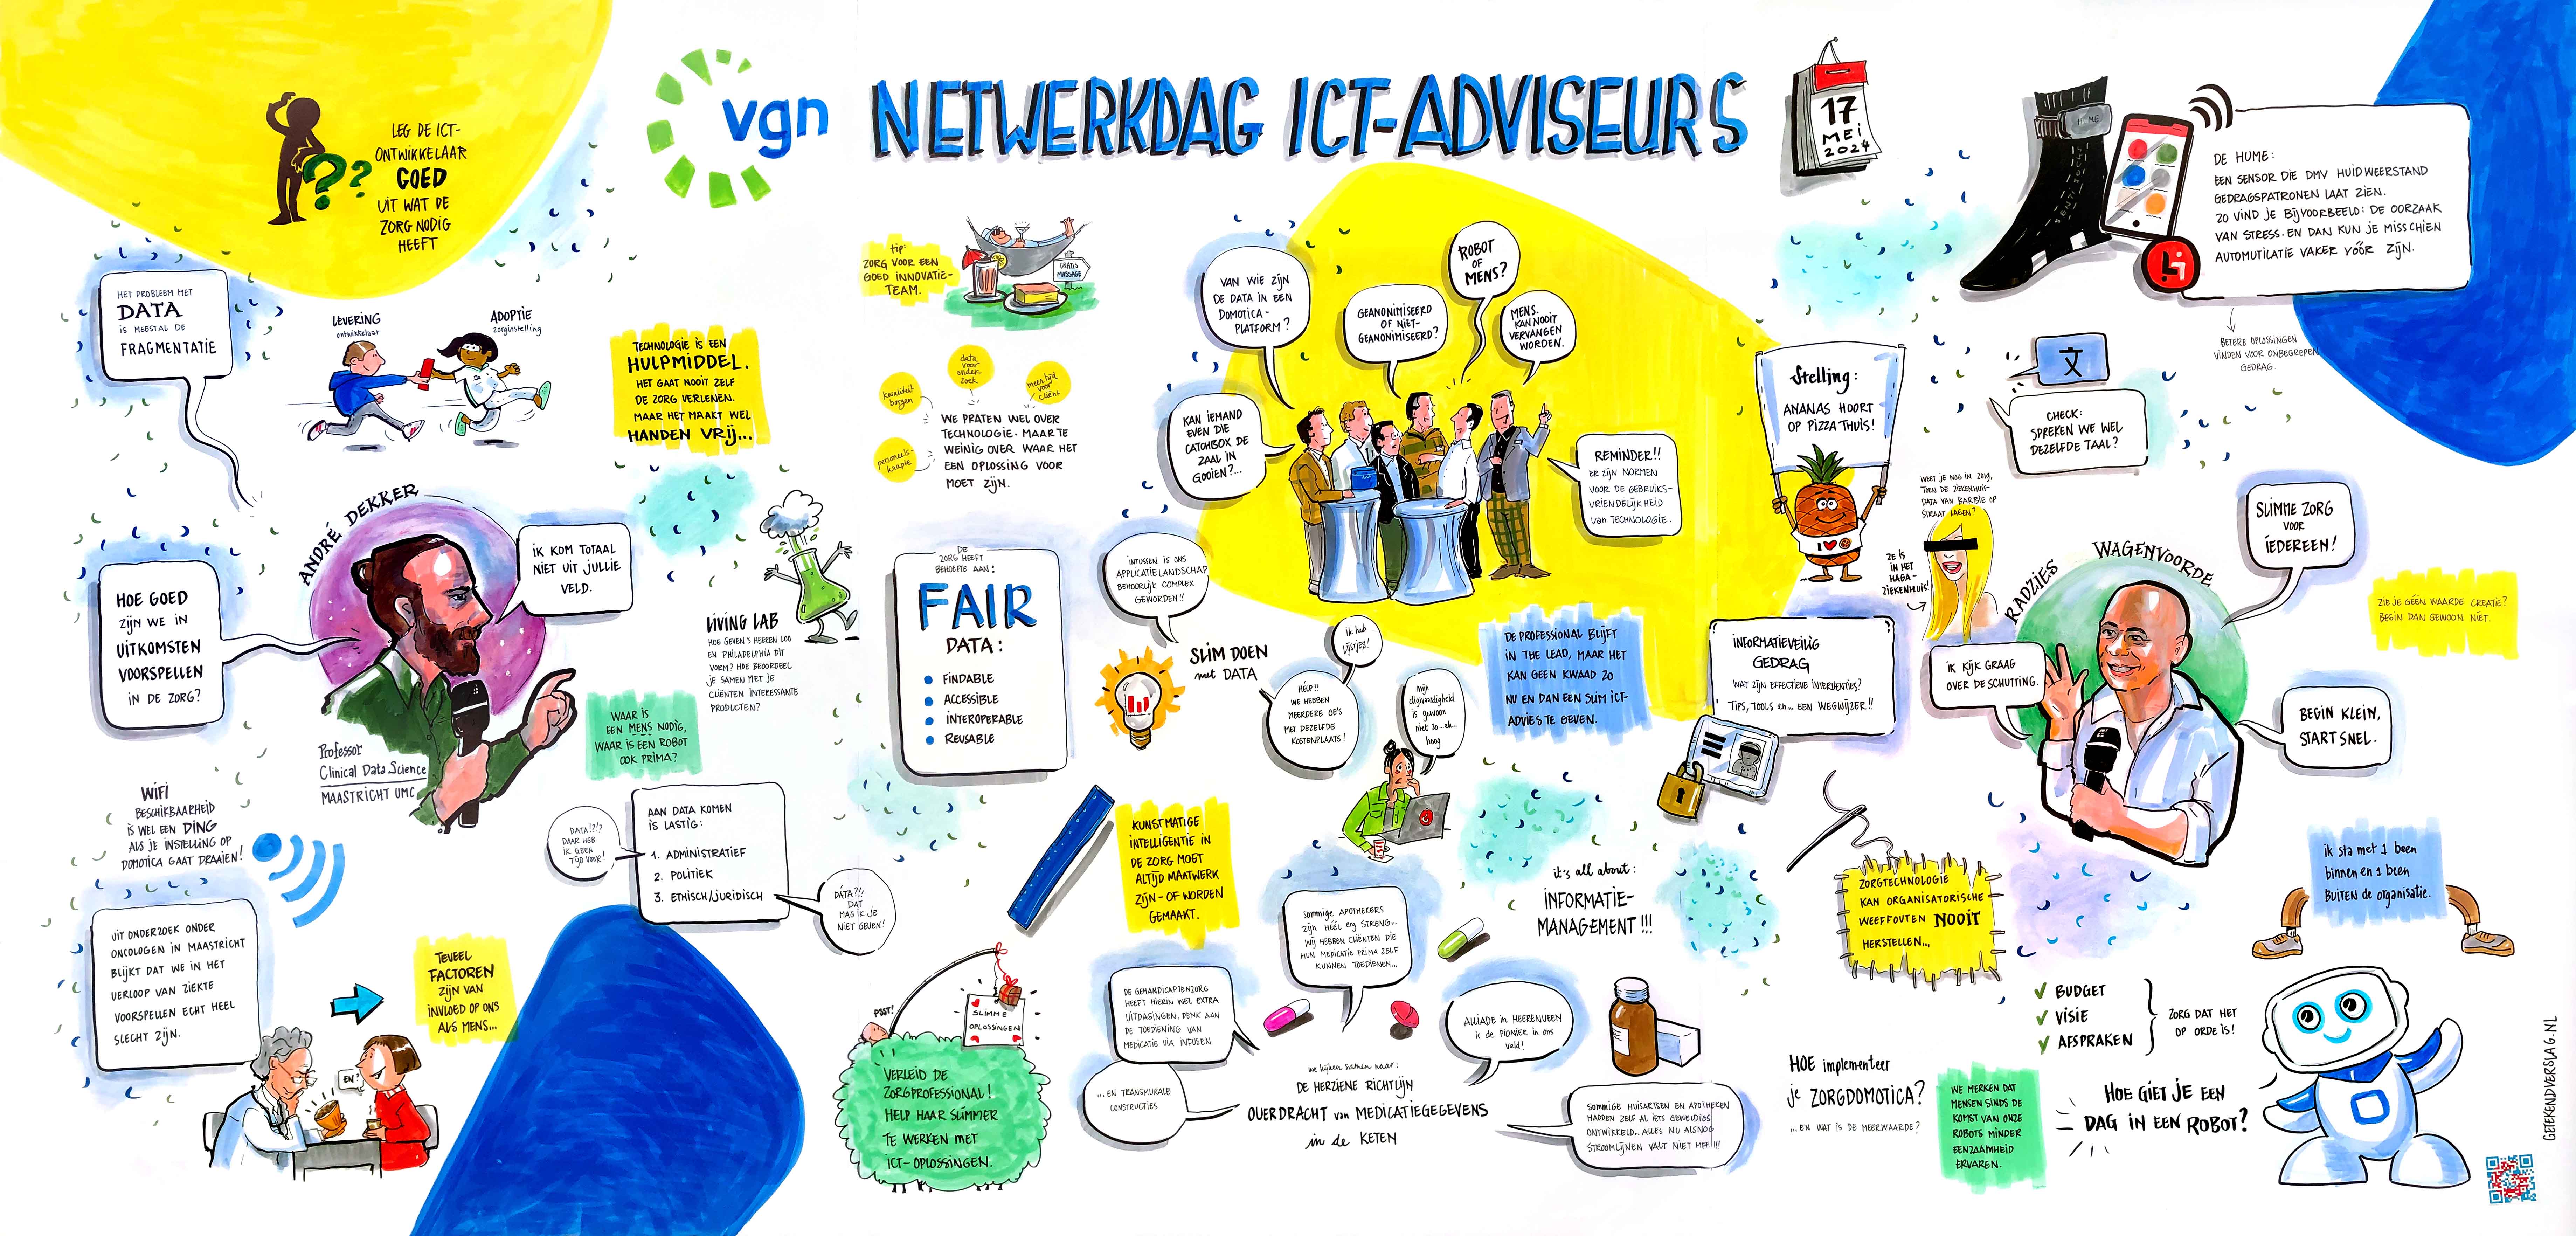 vgn
NETWERKDAG ICT-ADVISEURS
17
MEI
2024
LEG DE ICT-
ONTWIKKELAAR
GOED
UIT WAT DE
ZORG NODIG
HEEFT
HET PROBLEEM MET
DATA
IS MEESTAL DE
FRAGMENTATIE
LEVERING
ontwikkelaar
ADOPTIE
zorginstelling
TECHNOLOGIE IS EEN
HULPMIDDEL.
HET GAAT NOOIT ZELF
DE ZORG VERLENEN.
MAAR HET MAAKT WEL
HANDEN VRIJ...
ANDRÉ DEKKER
IK KOM TOTAAL
NIET UIT JULLIE
VELD.
HOE GOED
ZIJN WE IN
UITKOMSTEN
VOORSPELLEN
IN DE ZORG?
Professor
Clinical Data Science
MAASTRICHT UMC
WIFI
BESCHIKBAARHEID
IS WEL EEN DING
ALS JE INSTELLING OP
DOMOTICA GAAT DRAAIEN!
UIT ONDERZOEK ONDER
ONCOLOGEN IN MAASTRICHT
BLIJKT DAT WE IN HET
VERLOOP VAN ZIEKTE
VOORSPELLEN ECHT HEEL
SLECHT ZIJN.
EN?
TEVEEL
FACTOREN
ZIJN VAN
INVLOED OP ONS
ALS MENS...
LIVING LAB
HOE GEVEN 'S HEEREN LOO
EN PHILADELPHIA DIT
VORM? HOE BEOORDEEL
JE SAMEN MET JE
CLIËNTEN INTERESSANTE
PRODUCTEN?
WAAR IS
EEN MENS NODIG,
WAAR IS EEN ROBOT
OOK PRIMA?
DATA!?!?
DAAR HEB
IK GEEN
TIJD VOOR!
AAN DATA KOMEN
IS LASTIG:
1. ADMINISTRATIEF
2. POLITIEK
3. ETHISCH/JURIDISCH
DATA?!!
DAT
MAG IK JE
NIET GEVEN!
tip:
ZORG VOOR EEN
GOED INNOVATIE-
TEAM.
GRATIS
MASSAGE
kwaliteit
borgen
data
voor
onder
zoek
meer tijd
voor
cliënt
personeels-
krapte
WE PRATEN WEL OVER
TECHNOLOGIE. MAAR TE
WEINIG OVER WAAR HET
EEN OPLOSSING VOOR
MOET ZIJN.
DE
ZORG HEEFT
BEHOEFTE AAN:
FAIR
DATA:
FINDABLE
ACCESSIBLE
INTEROPERABLE
REUSABLE
INTUSSEN IS ONS
APPLICATIELANDSCHAP
BEHOORLIJK COMPLEX
GEWORDEN!!
SLIM DOEN
met DATA
KUNSTMATIGE
INTELLIGENTIE IN
DE ZORG MOET
ALTIJD MAATWERK
ZIJN - OF WORDEN
GEMAAKT.
PSST!
SLIMME
OPLOSSINGEN
VERLEID DE
ZORGPROFESSIONAL!
HELP HAAR SLIMMER
TE WERKEN MET
ICT-OPLOSSINGEN.
VAN WIE ZIJN
DE DATA IN EEN
DOMOTICA-
PLATFORM?
GEANONIMISEERD
OF NIET-
GEANONIMISEERD?
ROBOT
OF
MENS?
MENS.
KAN NOOIT
VERVANGEN
WORDEN.
KAN IEMAND
EVEN DIE
CATCHBOX DE
ZAAL IN
GOOIEN?...
REMINDER!!
ER ZIJN NORMEN
VOOR DE GEBRUIKS-
VRIENDELIJKHEID
van TECHNOLOGIE.
ik heb
lijstjes!
HELP!!
WE HEBBEN
MEERDERE OE'S
MET DEZELFDE
KOSTENPLAATS!
mijn
digivaardigheid
is gewoon
niet zo..eh..
hoog
DE PROFESSIONAL BLIJFT
IN THE LEAD, MAAR HET
KAN GEEN KWAAD ZO
NU EN DAN EEN SLIM ICT-
ADVIES TE GEVEN.
it's all about:
INFORMATIE-
MANAGEMENT!!!
SOMMIGE APOTHEKERS
ZIJN HÉÉL erg STRENG...
WIJ HEBBEN CLIËNTEN DIE
HUN MEDICATIE PRIMA ZELF
KUNNEN TOEDIENEN...
DE GEHANDICAPTENZORG
HEEFT HIERIN WEL EXTRA
UITDAGINGEN, DENK AAN
DE TOEDIENING VAN
MEDICATIE VIA INFUSEN
...EN TRANSMURALE
CONSTRUCTIES
ALLIADE in HEERENVEEN
is de PIONIER in ons
veld!
we kijken samen naar:
DE HERZIENE RICHTLIJN
OVERDRACHT van MEDICATIEGEGEVENS
in de KETEN
SOMMIGE HUISARTSEN EN APOTHEKEN
HADDEN ZELF AL IETS GEWELDIGS
ONTWIKKELD.. ALLES NU ALSNOG
STROOMLIJNEN VALT NIET MEE!!!
Stelling:
ANANAS HOORT
OP PIZZA THUIS!
I
WEET JE NOG IN 2019,
TOEN DE ZIEKENHUIS-
DATA VAN BARBIE OP
STRAAT LAGEN?
ZE IS
IN HET
HAGA-
ZIEKENHUIS!
INFORMATIEVEILIG
GEDRAG
WAT ZIJN EFFECTIEVE INTERVENTIES?
TIPS, TOOLS en... EEN WEGWIJZER!!
HUME
DE HUME:
EEN SENSOR DIE DMV HUIDWEERSTAND
GEDRAGSPATRONEN LAAT ZIEN.
ZO VIND JE BIJVOORBEELD: DE OORZAAK
VAN STRESS. EN DAN KUN JE MISSCHIEN
AUTOMUTILATIE VAKER VÓÓR ZIJN.
BETERE OPLOSSINGEN
VINDEN VOOR ONBEGREPEN
GEDRAG.
文
CHECK:
SPREKEN WE WEL
DEZELFDE TAAL?
RADZIES WAGENVOORDE
SLIMME ZORG
VOOR
IEDEREEN!
IK KIJK GRAAG
OVER DE SCHUTTING.
BEGIN KLEIN,
START SNEL.
ZIE JE GÉÉN WAARDE CREATIE?
BEGIN DAN GEWOON NIET.
ZORGTECHNOLOGIE
KAN ORGANISATORISCHE
WEEFFOUTEN NOOIT
HERSTELLEN...
ik sta met 1 been
binnen en 1 been
BUITEN de organisatie.
BUDGET
VISIE
AFSPRAKEN
ZORG DAT HET
OP ORDE IS!
HOE implementeer
je ZORGDOMOTICA?
...EN WAT IS DE MEERWAARDE?
WE MERKEN DAT
MENSEN SINDS DE
KOMST VAN ONZE
ROBOTS MINDER
EENZAAMHEID
ERVAREN.
HOE GIET JE EEN
DAG IN EEN ROBOT?
GETEKENDVERSLAG.NL